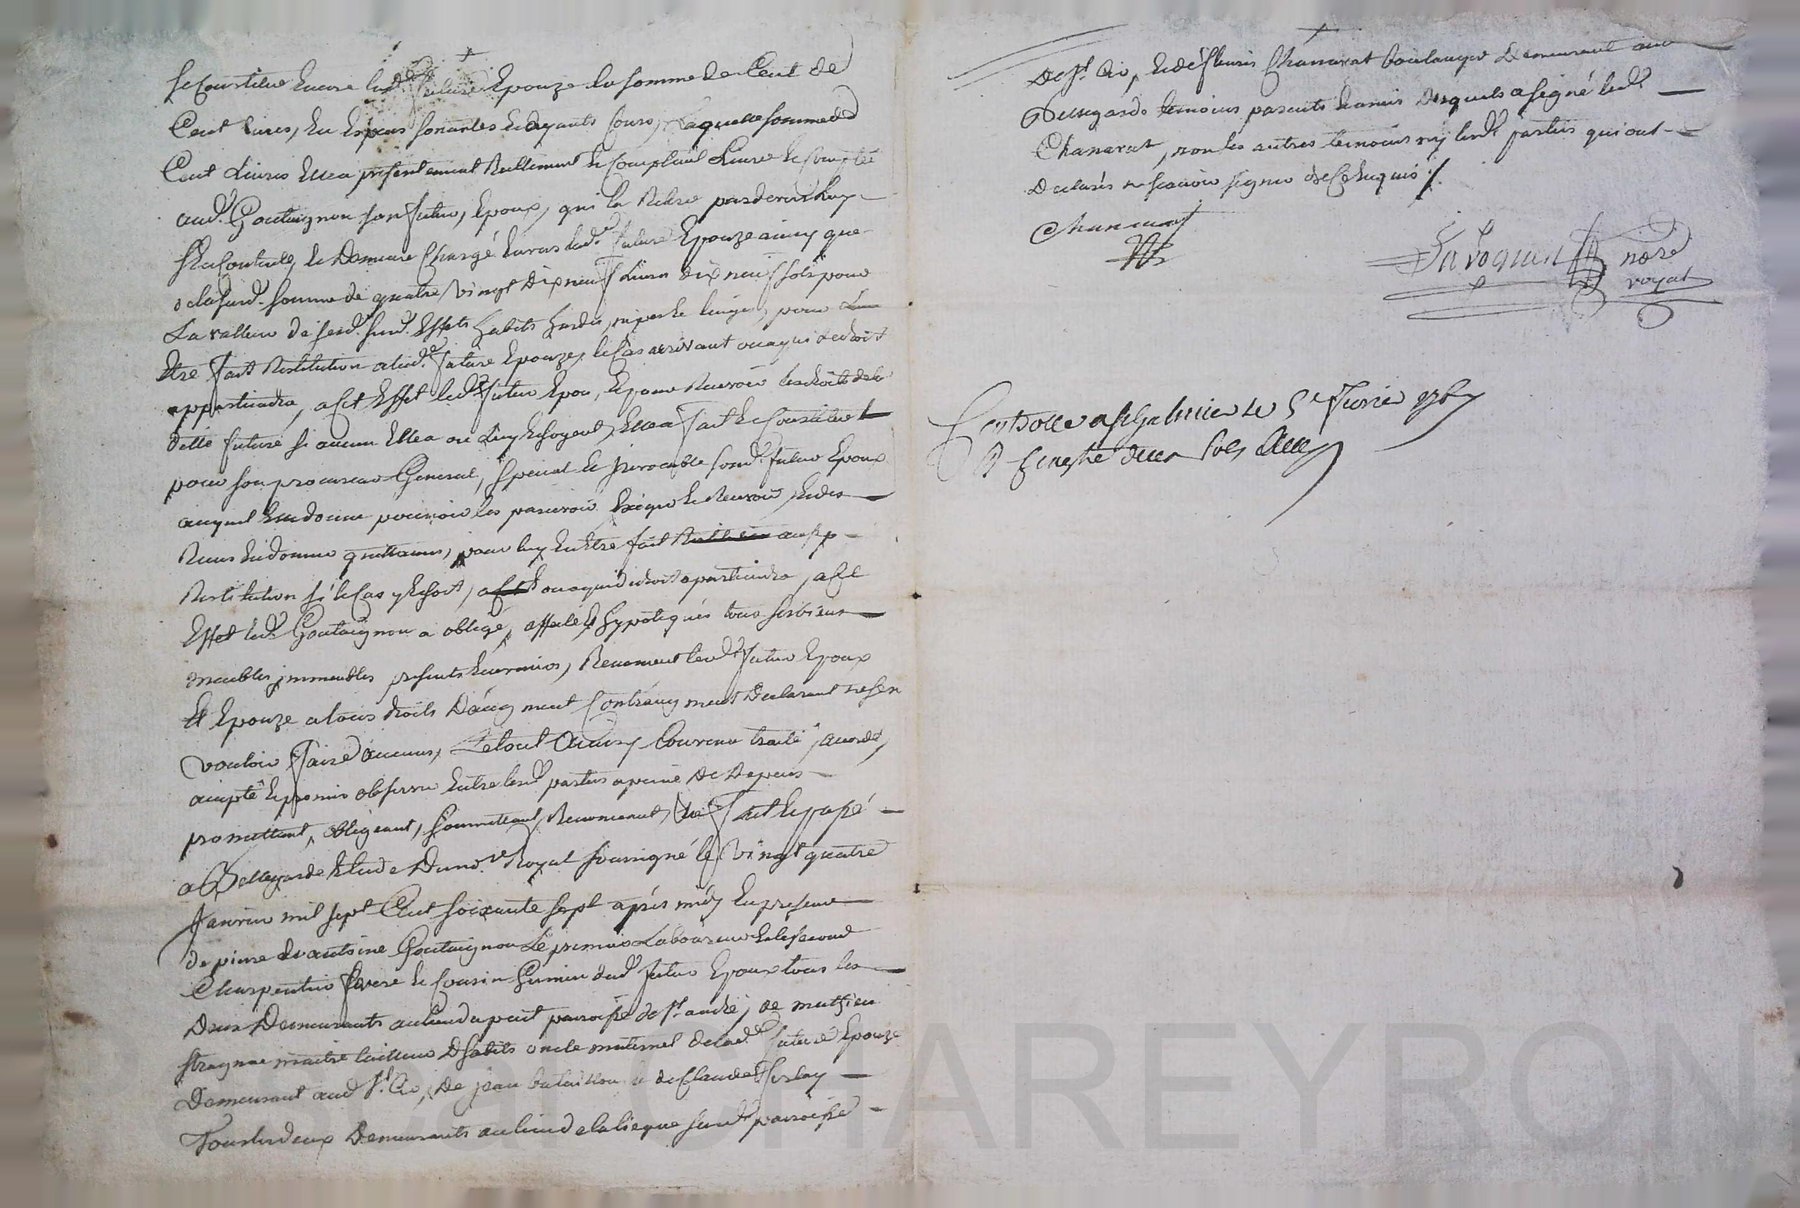 se Constitue Encore lad.e future Epouze la somme de Cent de
Cent livres, En Especes sonantes Et ayants cours, laquelle somme de
Cent Livres Ellea présentement Réellement Et Comptant Livré Et Compté
aud. Goutaignon son futur, Epoux, qui la Retiré pardevers luy
s'En Contente, Et Demeure Chargé Envers lad.e future Epouze ainsy que
de la sud. somme de quatre vingt Dix neuf Livres dix neuf sols pour
La valleur de sesd. sud. Effets habits hardes, nipes Et linges, pour Lu
Etre fait Restitution alad.e future Epouze, le Cas arrivant ou a qui de droit
appartiendra, a Cet Effet led. futur Epoux, Et pour Recevoir les droits de la
dite future si aucun Ellea ou Luy Echoyent, Ellea fait Et Constitue
pour son procureur General, special Et irrevocable sond. futur Epoux
auquel Elle donne pouvoir les percevoir Exiger Et Recevoir, Et des
Reçus En donner quittances, pour luy En Etre fait aussy
Restitution si le Cas y Echoit, ou a qui de droit apartiendra, a Cet
Effet led. Goutaignon a obligé, affecté Et hypotequés tous ses biens
meubles, immeubles presents Et avenirs, Renoncent lesd. futur Epoux
Et Epouze a tous droits D'augment Contraugment Declarant ne s'en
vouloir faire d'aucuns, Le tout Ainsy Convenu traité, accordé,
accepté Et promis observer Entre lesd. parties a peine De Depens
promettant, obligeant, soumettant, Renoncant, &a fait Et passé
a Bellegarde Etude Du no.re Royal soussigné le vingt quatre
Janvier mil sept Cent soixante sept après midy En presence
de pierre Et antoine Goutaignon Le premier Laboureur Et le second
Charpentier frere Et Cousin Germin dud. futur Epoux tous les
Deux Demeurants au lieu du puit parroisse de St. andré, de mathieu
maitre tailleur D'habits oncle maternel de lad.e future Epouze
Demeurant aud. St. Cir, De jean bataillon Et de Claude
Tous les deux Demeurants au lieu de la liegue susd. parroisse
De St. Cir, Et de fleuris Chanavat boulanger Demeurant aud
Bellegarde temoins parents Et amis Desquels a signé led.
Chanavat, non les autres temoins ny lesd. parties qui ont
Declarés ne scavoir signer de Ce Enquis /.
Chanavat
Javoguen no.re
royal
Controllé a St Galmier le 5e Fevrier 1767
R